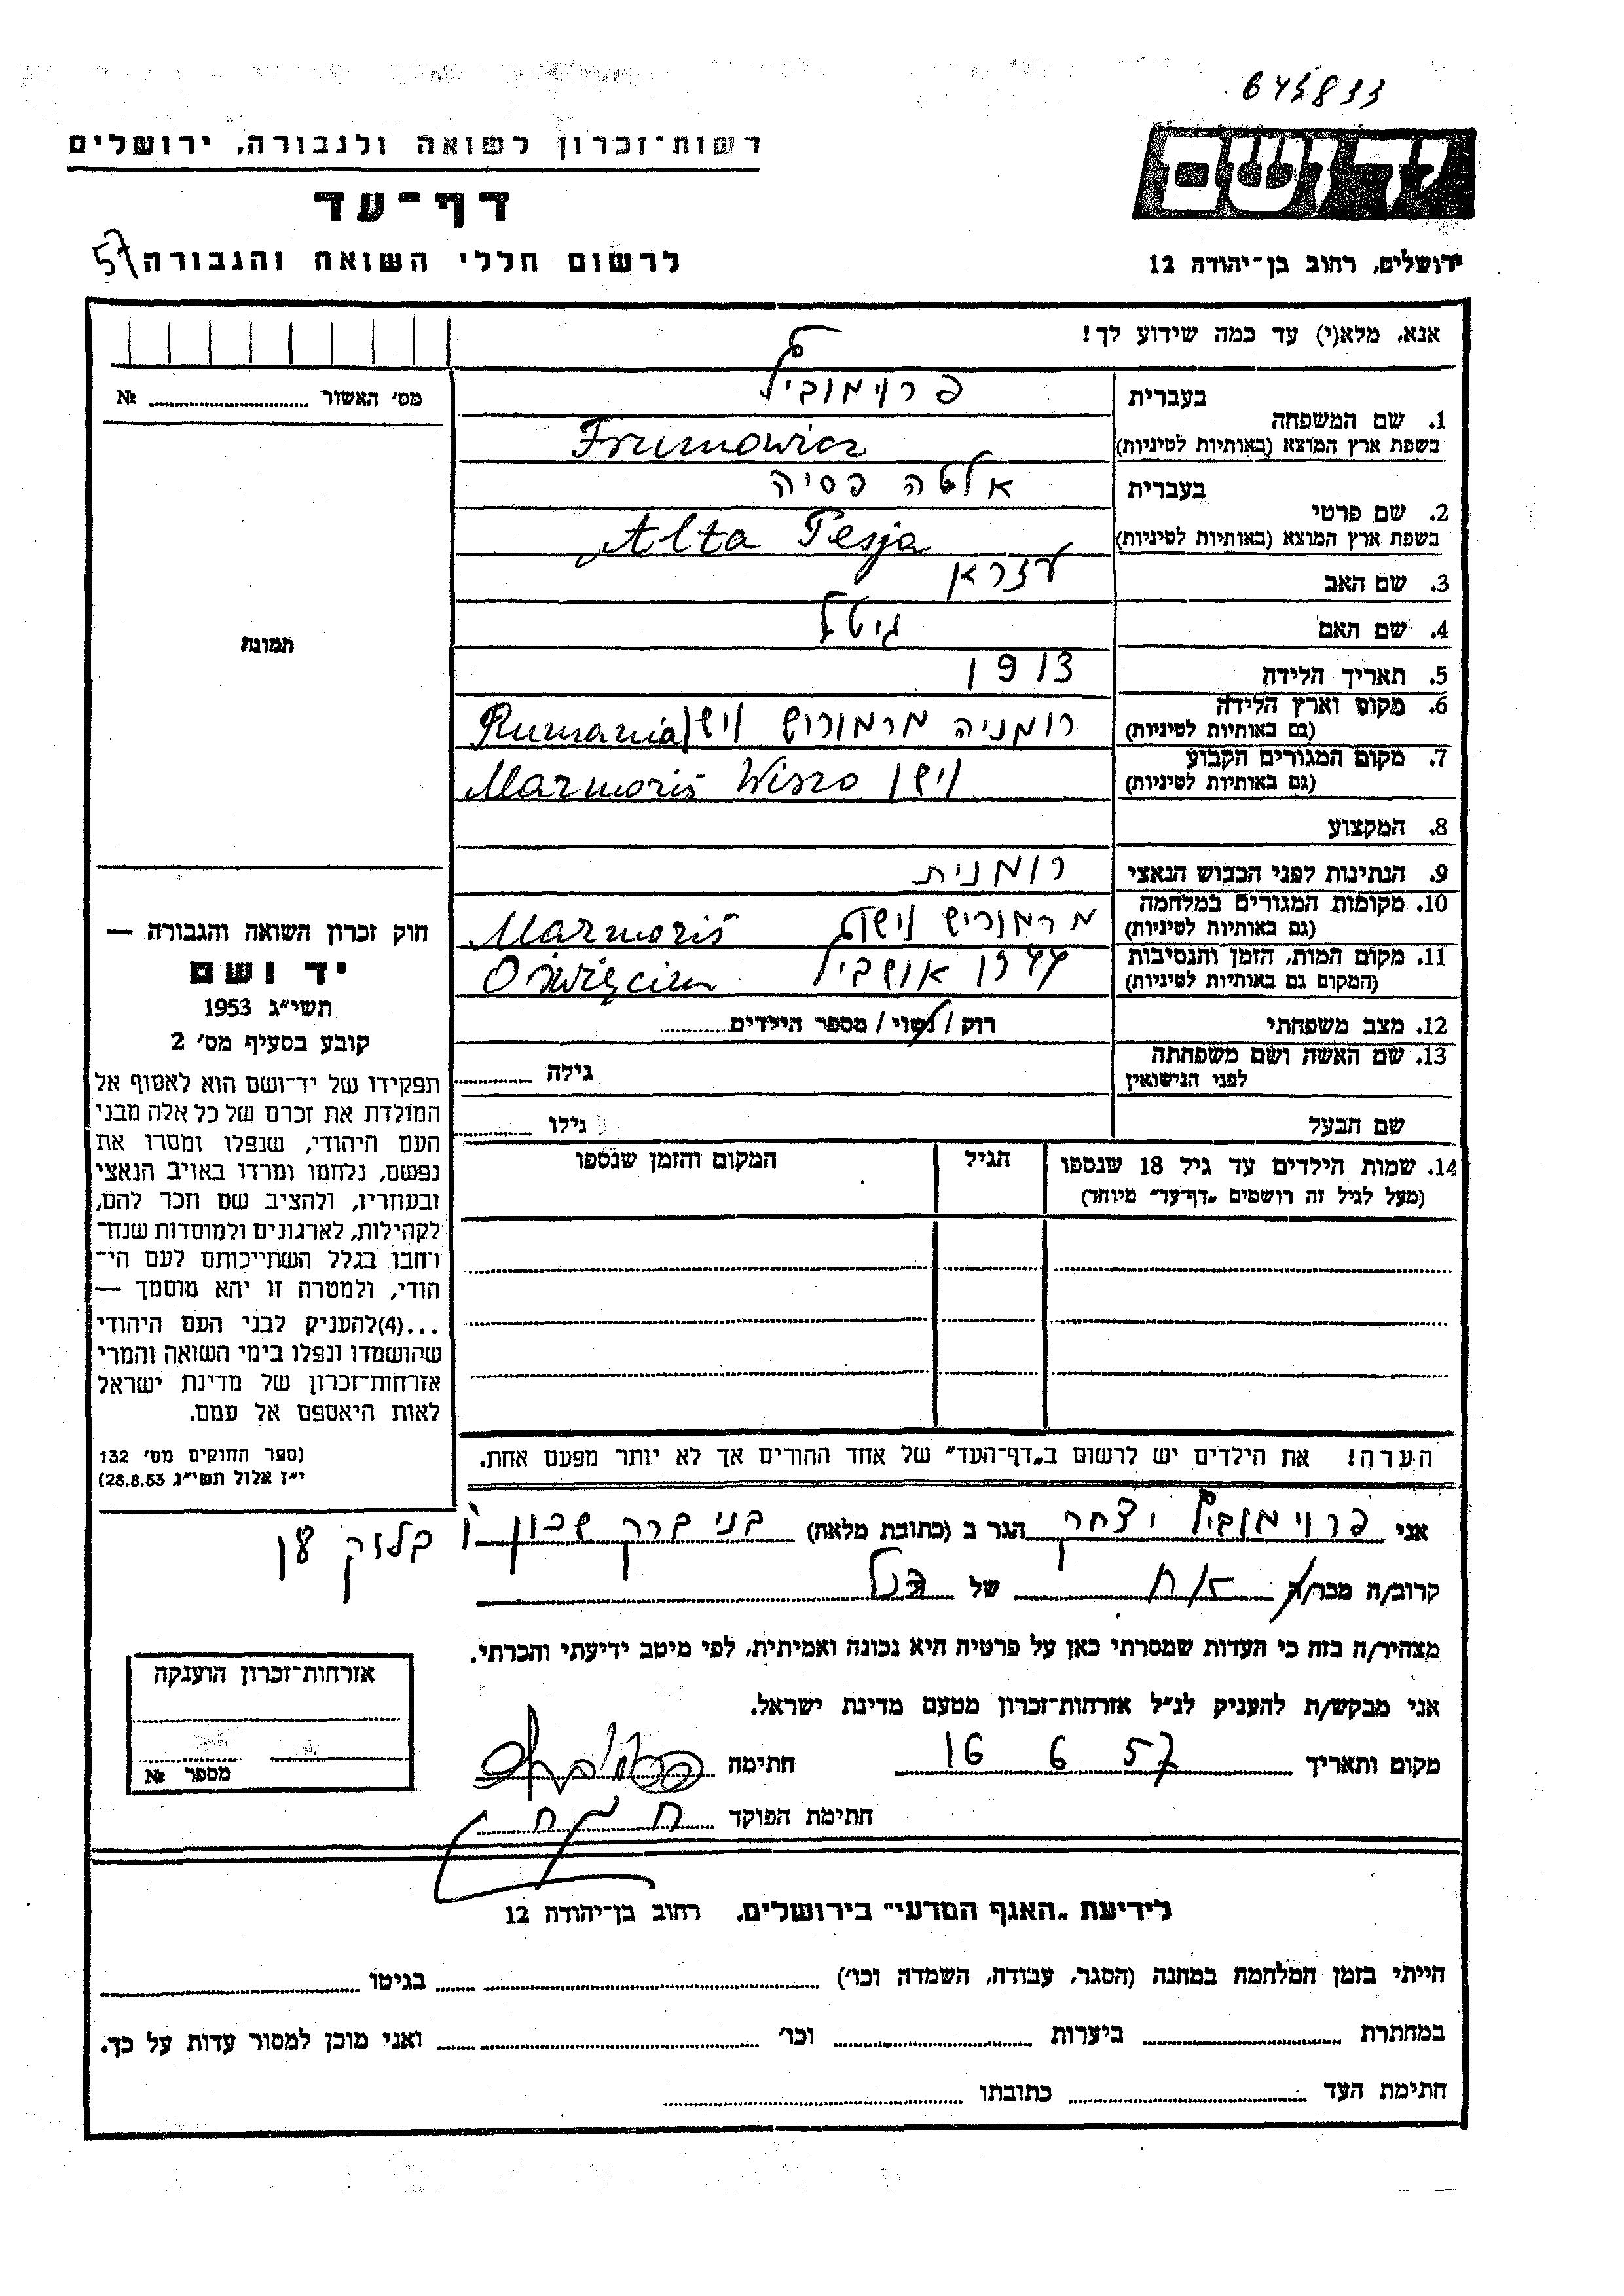 645833
יד ושם
רשות־זכרון לשואה ולגבורה, ירושלים
דף־עד
לרשום חללי השואה והגבורה 57
ירושלים, רחוב בן־יהודה 12
אנא, מלא(י) עד כמה שידוע לך!
מס' האשור № 
בעברית
1. שם המשפחה
בשפת ארץ המוצא (באותיות לטיניות)
Frumowicz
בעברית אלטה פסיה
2. שם פרטי
בשפת ארץ המוצא (באותיות לטיניות)
Alta Pesja
3. שם האב עזרא
4. שם האם גיטל
5. תאריך הלידה 1913
6. מקום וארץ הלידה
(גם באותיות לטיניות)
רומניה מרמורוש וישו Rumania
7. מקום המגורים הקבוע
(גם באותיות לטיניות)
וישו Marmoriš Wiszo
8. המקצוע
9. הנתינות לפני הכבוש הנאצי רומנית
10. מקומות המגורים במלחמה
(גם באותיות לטיניות)
מרמוריש Marmoriš
11. מקום המות, הזמן והנסיבות
(המקום גם באותיות לטיניות)
Oświęcim
12. מצב משפחתי רוק / נשוי / מספר הילדים
13. שם האשה ושם משפחתה
לפני הנישואין
גילה
שם הבעל גילו
14. שמות הילדים עד גיל 18 שנספו
(מעל לגיל זה רושמים „דף־עד" מיוחד)
הגיל
המקום והזמן שנספו
תמונה
חוק זכרון השואה והגבורה —
יד ושם
תשי״ג 1953
קובע בסעיף מס' 2
תפקידו של יד־ושם הוא לאסוף אל
המולדת את זכרם של כל אלה מבני
העם היהודי, שנפלו ומסרו את
נפשם, נלחמו ומרדו באויב הנאצי
ובעוזריו, ולהציב שם וזכר להם,
לקהילות, לארגונים ולמוסדות שנח־
רבו בגלל השתייכותם לעם הי־
הודי, ולמטרה זו יהא מוסמך —
...(4)להעניק לבני העם היהודי
שהושמדו ונפלו בימי השואה והמרי
אזרחות־זכרון של מדינת ישראל
לאות היאספם אל עמם.
(ספר החוקים מס' 132
י״ז אלול תשי״ג 28.8.53)
הערה! את הילדים יש לרשום ב„דף־העד" של אחד ההורים אך לא יותר מפעם אחת.
אני יצחק הגר ב (כתובת מלאה) בני ברק שכון ו בלוק
קרוב/ה מכר/ה אח של הנ״ל
מצהיר/ה בזה כי העדות שמסרתי כאן על פרטיה היא נכונה ואמיתית, לפי מיטב ידיעתי והכרתי.
אני מבקש/ת להעניק לנ״ל אזרחות־זכרון מטעם מדינת ישראל.
מקום ותאריך 16 6 57 חתימה
חתימת הפוקד
אזרחות־זכרון הוענקה
מספר №
לידיעת „האגף המדעי" בירושלים, רחוב בן־יהודה 12
הייתי בזמן המלחמה במחנה (הסגר, עבודה, השמדה וכו') בגיטו
במחתרת ביערות וכו' ואני מוכן למסור עדות על כך.
חתימת העד כתובתו